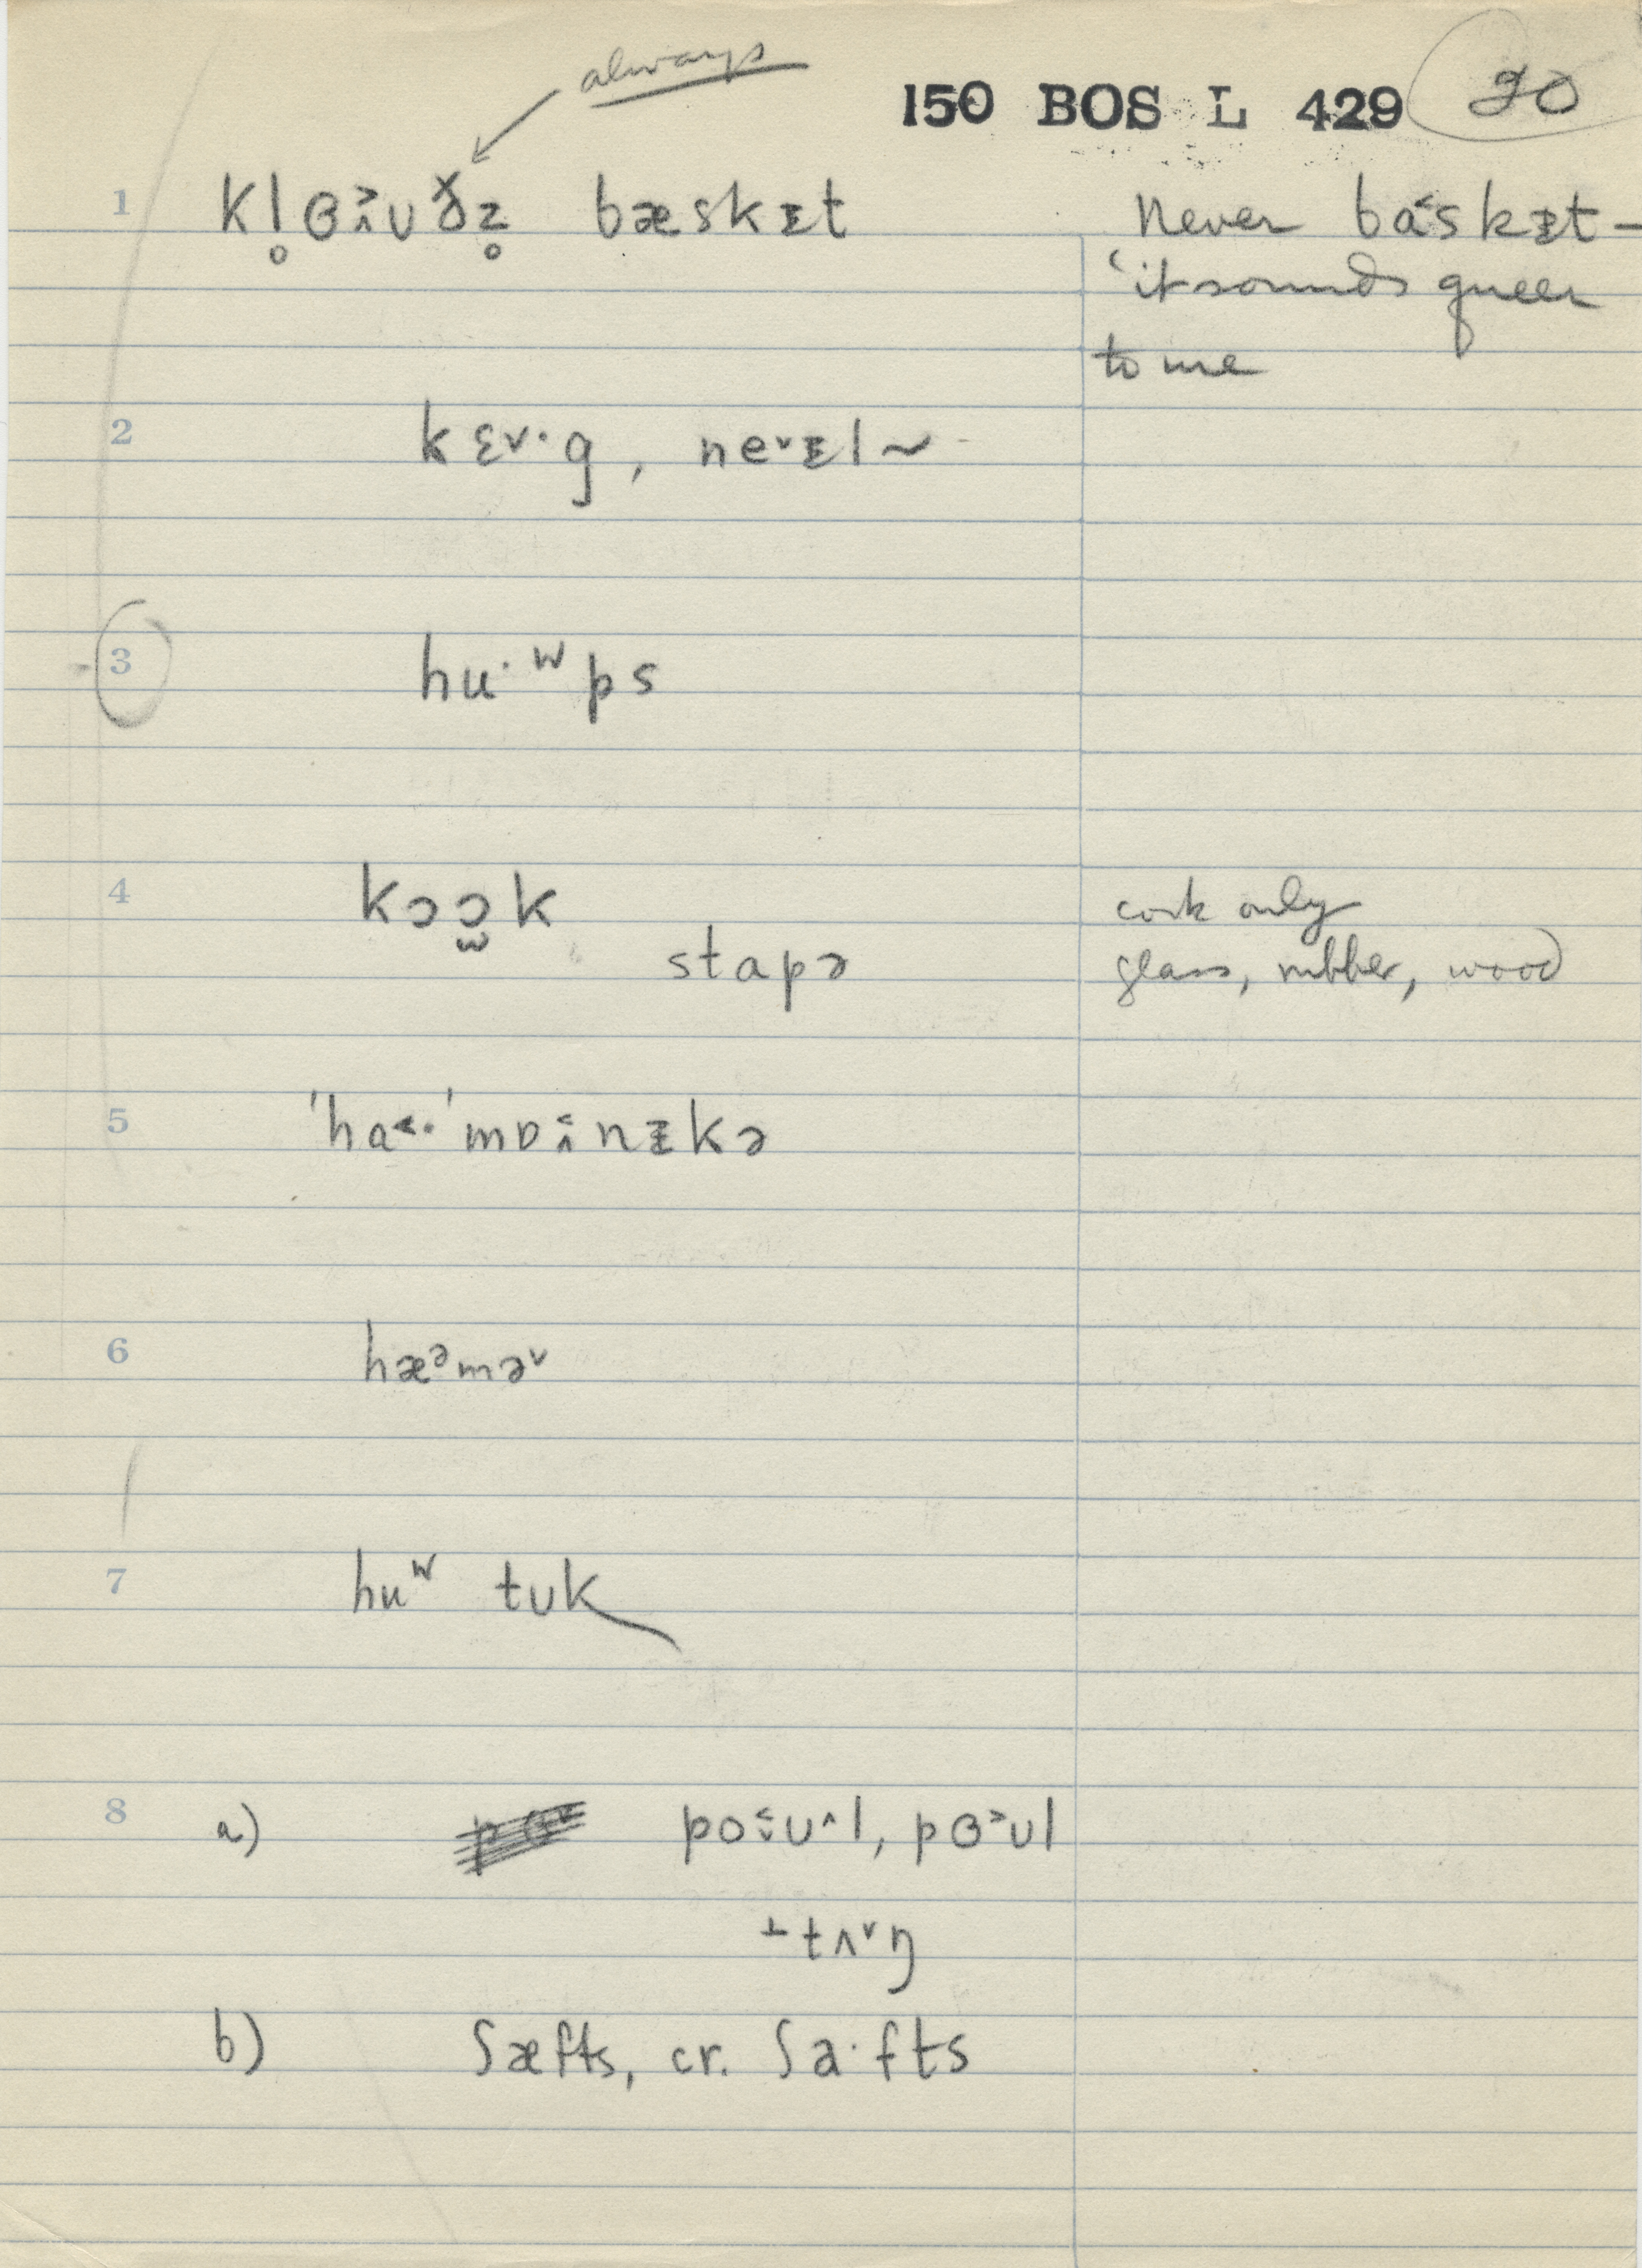 always
150 BOS L 429 20
1 kl̥ɵ̯˃ʊðz̥ bæskᵻt Never ba˂skᵻt –
‘it sounds queer
to me
2 kɛ˅·g, ne˅ᵻl ~
3 hu·ʷps
4 kɔɔ̫k cork only
stapə glass, rubber, wood
5 ˈha˂·ˈmɒ˂nᵻkə
6 hæᵊmə˅
7 huʷ tʊk
8 a) po˂ʊ˄l, pɵ˃ʊl
⊥tʌ˅ŋ
b) ʃæfts, cr. ʃa·fts